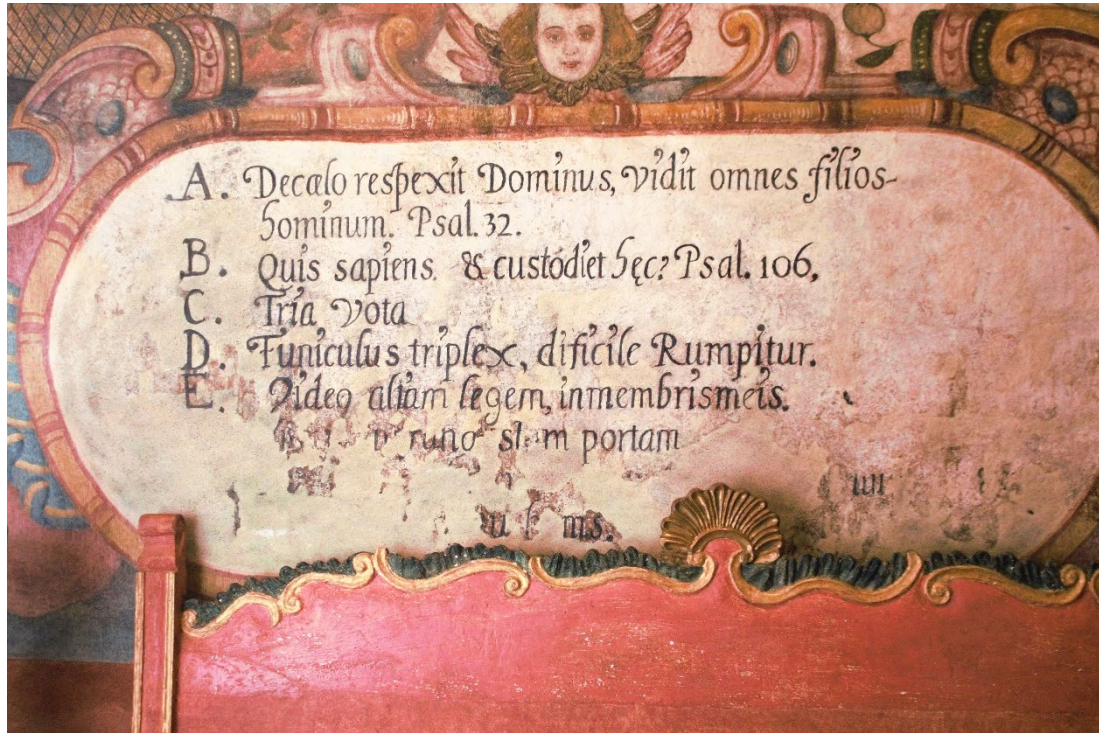 A. Decælo respexit Dominus, vidit omnes filios-
hominum. Psal. 32.
B. Quis sapiens. & custodiet hęc? Psal. 106,
C. Tria vota
D. Funiculus triplex, dificile Rumpitur.
E. Video aliam legem, inmembrismeis.
portam